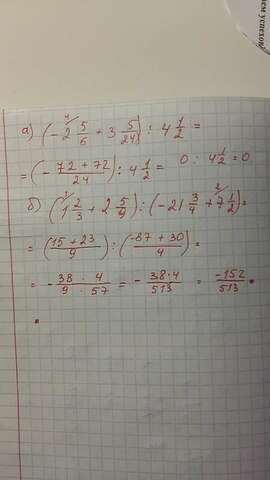 ем успехов!
4
а) (-2 5/6 + 3 5/24) : 4 1/2 =
= (- 72 + 72 / 24) : 4 1/2 = 0 : 4 1/2 = 0
3 2
б) (1 2/3 + 2 5/9) : (-21 3/4 + 7 1/2) =
= (15 + 23 / 9) : (-87 + 30 / 4) =
= - 38 · 4 / 9 · 57 = - 38·4 / 513 = -152 / 513 .